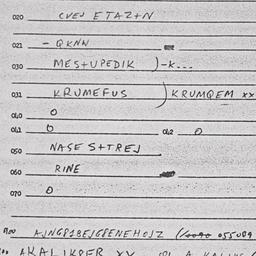 020 CVEJ ETAZ+N
021 - QKNN
030 MES+UPEDIK )-K...
031 KRUMEFUS ) KRUMQEM xx
040 0
041 0 042 0
050 NASE S+TREJ
060 RINE
070 0
A00 AJNGP1BEJGPENEHOJZ 055089
AKALIKPER XX